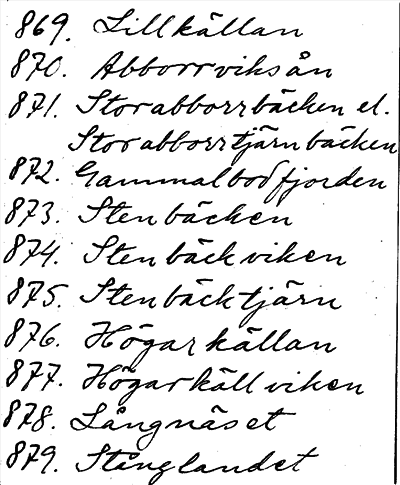 869. Lillkällan
870. Abborrviksån
871. Storabborrbäcken el.
Storabborrtjärnbäcken
872. Gammalbodfjorden
873. Stenbäcken
874. Stenbäckviken
875. Stenbäcktjärn
876. Högarkällan
877. Högarkällviken
878. Långnäset
879. Stånglandet